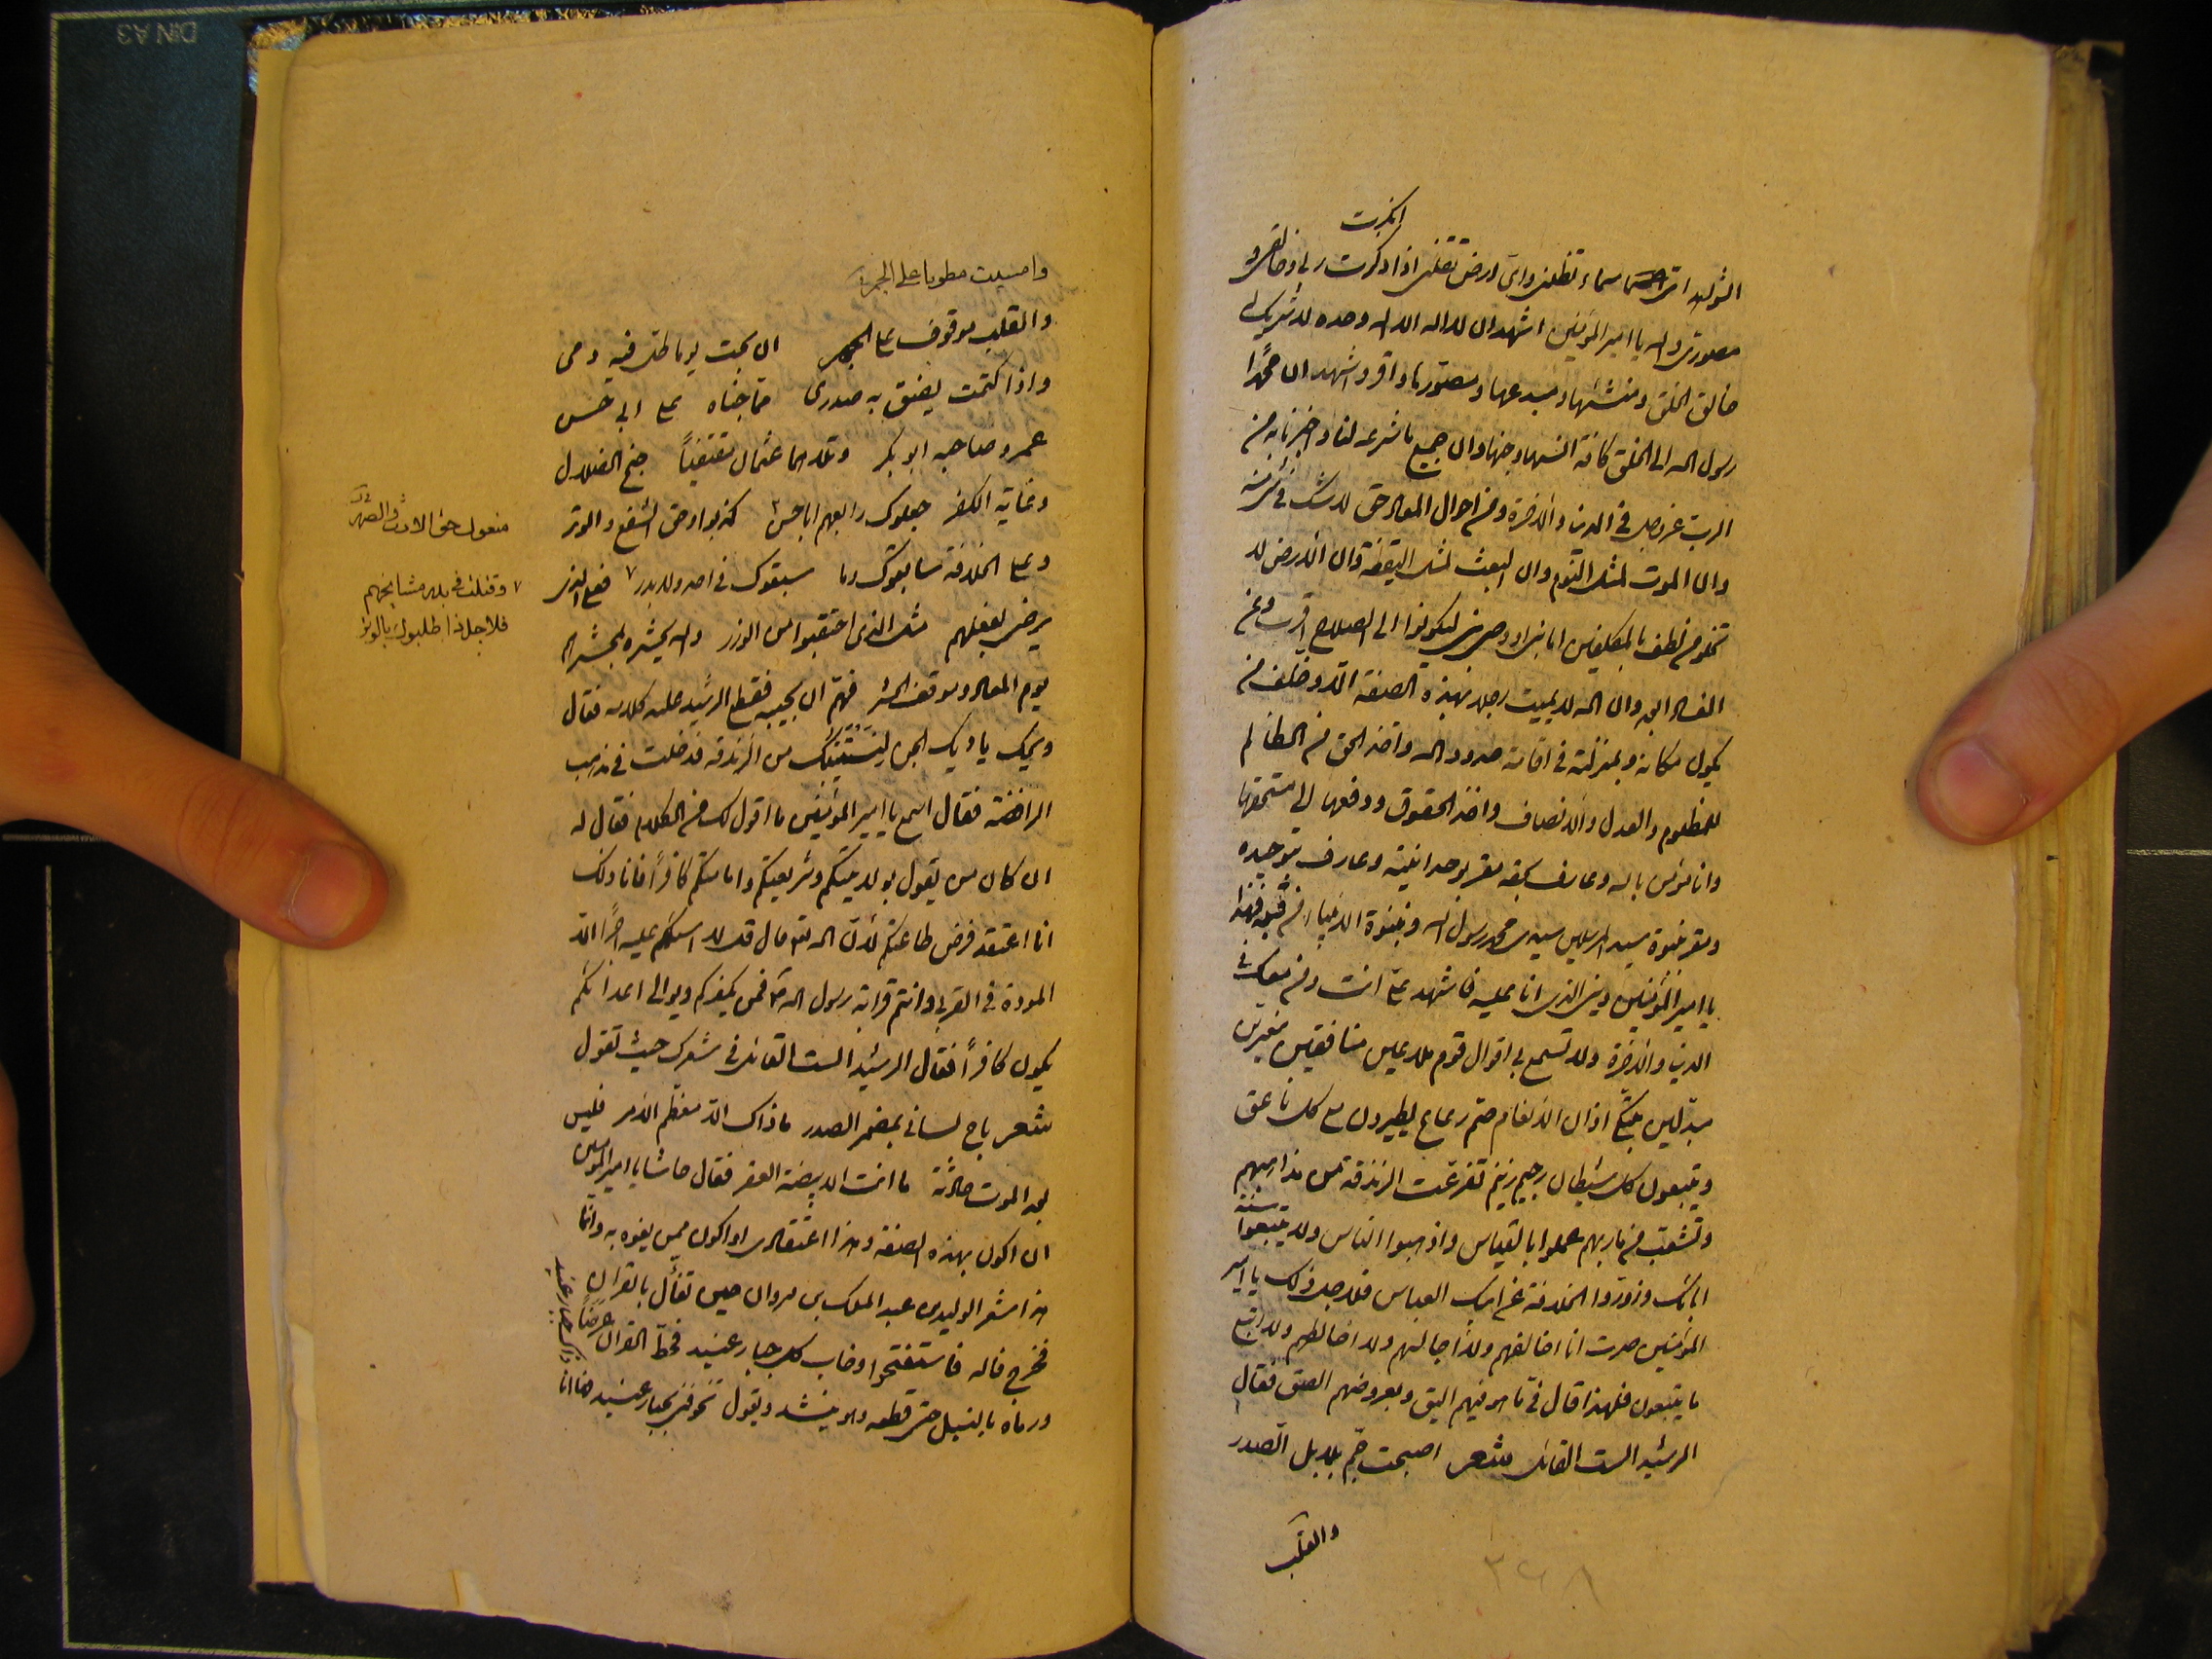 انكرت
الشولهد اتى سماء تظلنى واى ارض تقلنى اذا ذكرت ربى وخالقى و
مصورى والله يا امير المؤمنين اشهد ان لا اله الا الله وحده لا شريك له
خالق الخلق ومنشئها ومبدعها ومصورها واقر واشهد ان محمدًا
رسول الله الى الخلق كافة انسها وجنها وان جميع ما شرعه لنا واخبرنا به من
الرب عز وجل فى الدنيا والاخرة ومن احوال المعاد حق لا شك فى شئ منه
وان الموت لمثل النوم وان البعث لمثل اليقظة وان الارض لا
تخلو من لطف بالمكلفين اما بنبى او وصى نبى ليكونوا الى الصلاح اقرب وعن
الفساد ابعد وان الله لا يميت رجلا بهذه الصفة الا وخلف من
يكون مكانه وبمنزلته فى اقامة حدود الله واخذ الحق من الظالم
للمظلوم والعدل والانصاف واخذ الحقوق ودفعها الى مستحقها
وانا مؤمن بالله وعارف بحقه مقر بوحدانيته وعارف بتوحيده
ومقر بنبوة سيد المرسلين سيدى محمد رسول الله وبنبوة الانبياء من قبله فهذا
يا امير المؤمنين دينى الذى انا عليه فاشهد على انت ومن معك فى
الدنيا والاخرة ولا تسمع بى اقوال قوم ملاعين منافقين مغيرين
مبدلين يبتكوا اذان الانعام همج رعاع يطيرون مع كل ناعق
ويتبعون كل شيطان رجيم زنيم تفرعت الزندقة من مذاهبهم
وتشعبت من ماربهم عملوا بالقياس واذهبوا الناس ولم يتبعوا سنة
ابائك وزوروا الخلافة عن ابيك العباس فلاجل ذلك يا امير
المؤمنين صرت انا اخالفهم ولا اجالسهم ولا اخالطهم ولا اتبع
ما يتبعون فلهذا قال فى ما هو فيهم اليق وبعروضهم الصق فقال
الرشيد الست القائل شعر اصبحت جم بلابل الصدر
والقلب
٣٤٨
وامسيت مطويا على الجمر
والقلب موقوف على الجمر ان بحت يوما طل فيه دمى
واذا كتمت يضيق به صدرى مما جناه على ابى حسن
عمر وصاحبه ابو بكر وتلاهما عثمان مقتفيًا جنح الضلال
وغاية الكفر جعلوك رابعهم ابا حسن كذبوا وحق الشفع والوتر
وعلى الخلافة سابقوك وما سبقوك فى احد ولا بدر ٧ فعلى الذى
يرضى بفعلهم مثل الذى احتقبوا من الوزر والله يحشره بحشرهم
يوم المعاد وموقف الحشر فهم ان يجيبه فقطع الرشيد عليه كلامه فقال
ويحك يا ديك الجن ليستتبك من الزندقة فدخلت فى مذهب
الرافضة فقال اسمع يا امير المؤمنين ما اقول لك من الكلام فقال له
ان كان من يقول بولايتكم وشريعتكم وامامتكم كافرًا فانا ذلك
انا اعتقد فرض طاعتكم لان الله تعالى قال قل لا اسئلكم عليه اجرًا الا
المودة فى القربى وانتم قرابة رسول الله ص فمن يكفركم ويوالى اعدائكم
يكون كافرًا فقال الرشيد الست القائل فى شعرك حيث تقول
شعر باح لسانى بمضمر الصدر ما ذاك الا معظم الامر فليس
بعد الموت حادثة ما انت الا بيضة العقر فقال حاشا يا امير المؤمنين
ان اكون بهذه الصفة وهذا اعتقادى او اكون ممن يفوه به وانما
هذا شعر الوليد بن عبد الملك بن مروان حين تفأل بالقران
فخرج فاله فاستفتحوا وخاب كل جبار عنيد فحط القران غرضًا
ورماه بالنبل حتى قطعه وهو ينشد ويقول تخوفنى بجبار عنيد فها انا
ذاك جبار عنيد
منعوك حق الارث والصهر
٧ وقتلت فى بدر مشايخهم
فلاجل ذا طلبوك بالوتر